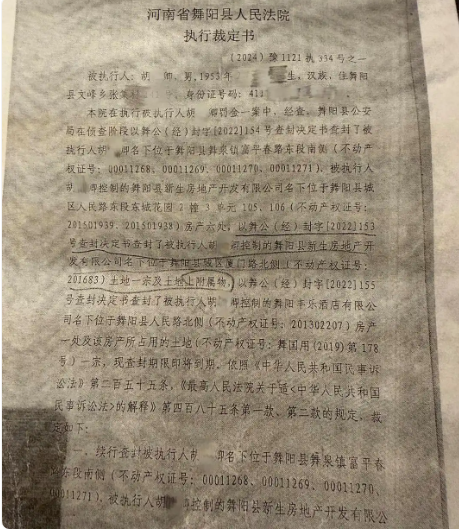 河南省舞阳县人民法院
执行裁定书
(2024)豫1121执334号之一
被执行人:胡 帅,男,1953年 生,汉族,住舞阳
县文峰乡张 身份证号码:411
本院在执行被执行人胡 罚金一案中,经查,舞阳县公安
局在侦查阶段以舞公(经)封字[2022]154号查封决定书查封了被
执行人胡 即名下位于舞阳县舞泉镇富平春路东段南侧(不动产
权证号:00011268、00011269、00011270、00011271)、被执行人
胡 控制的舞阳县新生房地产开发有限公司名下位于舞阳县城
区人民路东段东城花园 幢3单元105、106(不动产权证号:
201501939、201501938)房产六处,以舞公(经)封字[2022]153
号查封决定书查封了被执行人胡 控制的舞阳县新生房地产开
发有限公司名下位于舞阳县城区厦门路北侧(不动产权证号:
201683)土地一宗及土地上附属物,以舞公(经)封字[2022]155
号查封决定书查封了被执行人胡 控制的舞阳丰乐酒店有限公
司名下位于舞阳县人民路北侧(不动产权证号:201302207)房产
一处及该房产所占用的土地(舞阳县用(2019)第178
号)一宗,现查封期限即将到期。依照《中华人民共和国民事诉
讼法》第二百五十五条,《最高人民法院关于适<中华人民共和国
民事诉讼法>的解释》第四百八十五条第一款、第二款的规定,裁
定如下:
一、续行查封被执行人胡 即名下位于舞阳县舞泉镇富平春
路东段南侧(不动产权证号:00011268、00011269、00011270、
00011271)、被执行人胡 控制的舞阳县新生房地产开发有限公